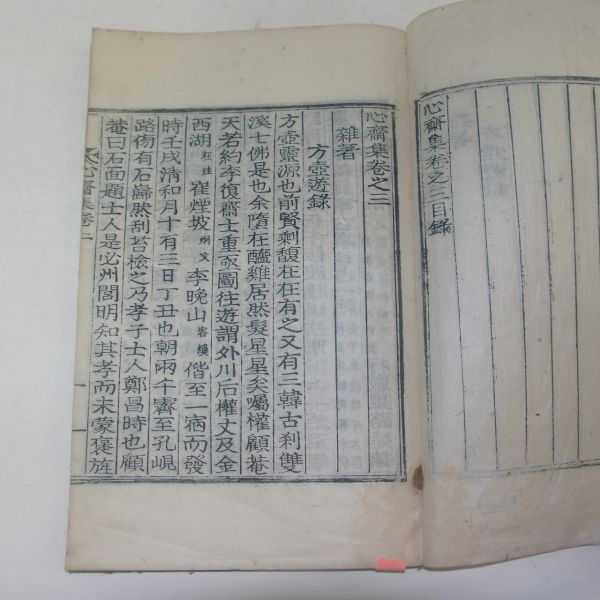 心齋集卷之三目錄
心齋集卷之三
雜著
方壺遊錄
方壺靈源也前賢剩馥在在有之又有三韓古刹雙
溪七佛是也余隋在醯雞居然髮星星矣囑權顧菴
天若約李復齋士重亟圖往遊謂外川后權丈及金
西湖 在珪 崔煙坡 炯文 李晚山 容績 偕至一宿而發
時壬戌淸和月十有三日丁丑也朝雨午霽至孔峴
路傍有石巋然刮苔檢之乃孝子士人鄭昌時也顧
菴曰石面題士人是必州閭明知其孝而未蒙褒旌
心齋集卷
一